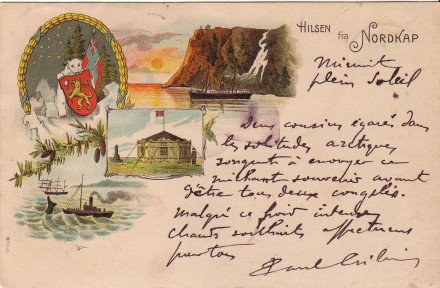 HILSEN fra NORDKAP
Minuit
plein soleil
Deux cousins égarés dans
les solitudes arctiques
songent à envoyer ce
méchant souvenir avant
d'être tous deux congelés.
Malgré ce froid intense
chauds souhaits affectueux
pour tous
Paul